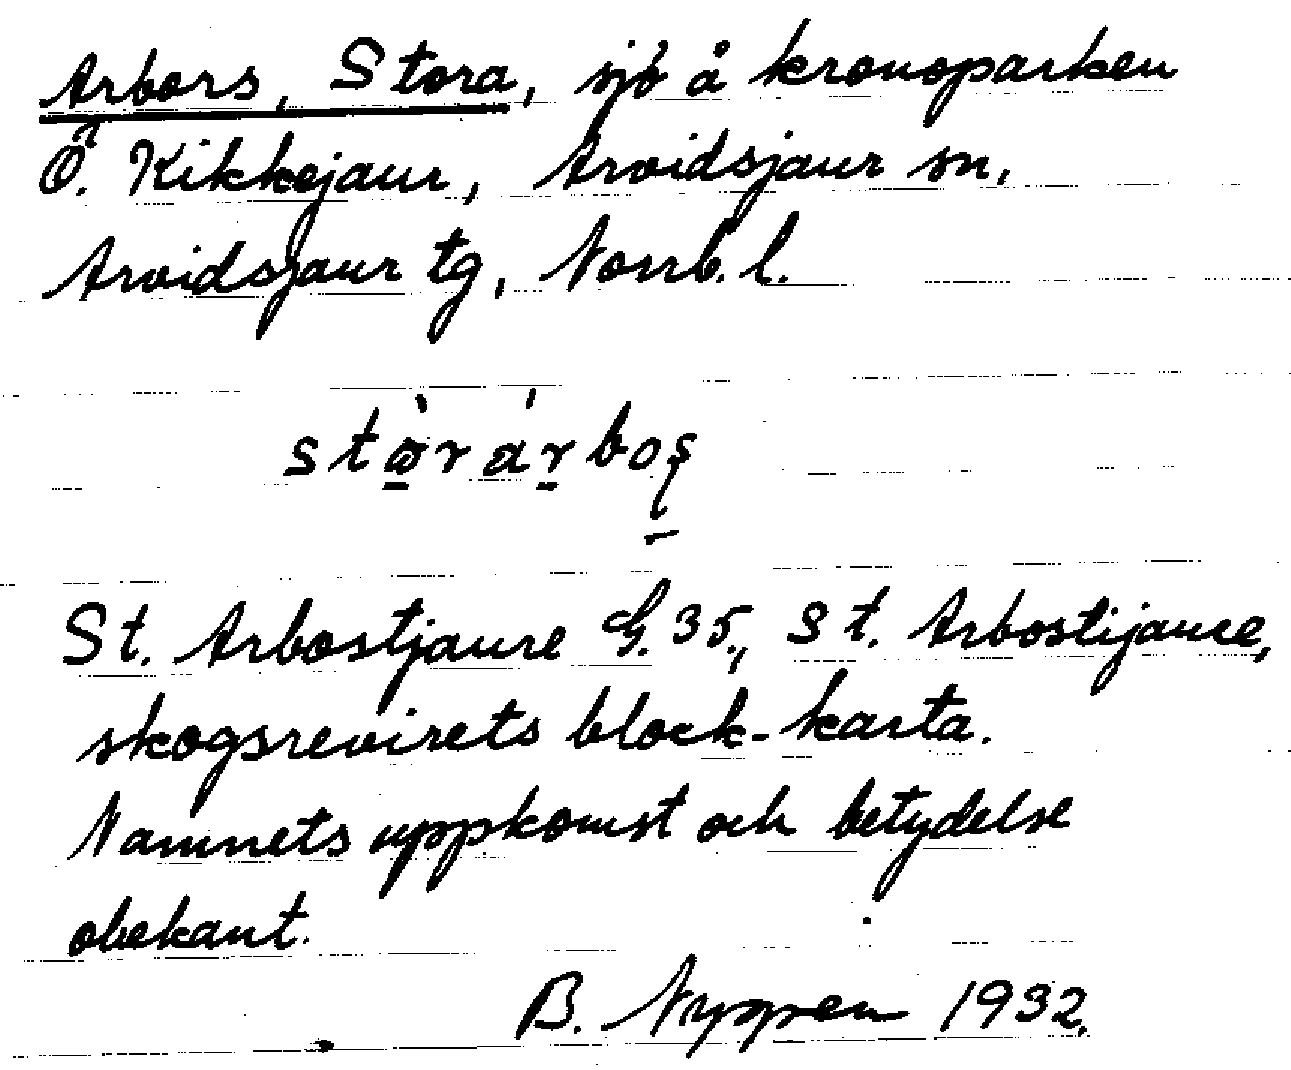 Arbors, Stora, sjö å kronoparken
Ö. Kikkejaur, Arvidsjaur sn,
Arvidsjaur tg, Norrb. l.
St. Arbostjaure G. 35., St. Arbostijaure,
skogsrevirets block-karta.
Namnets uppkomst och betydelse
obekant.
B. Nygren 1932.